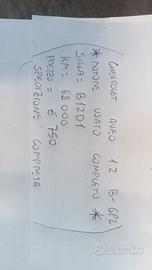 CHEVROLET AVEO 1.2 B-GPL
* MOTORE USATO COMPLETO *
SIGLA = B12D1
KM = 68000
PREZZO = € 750
SPEDIZIONE COMPRESA
subito